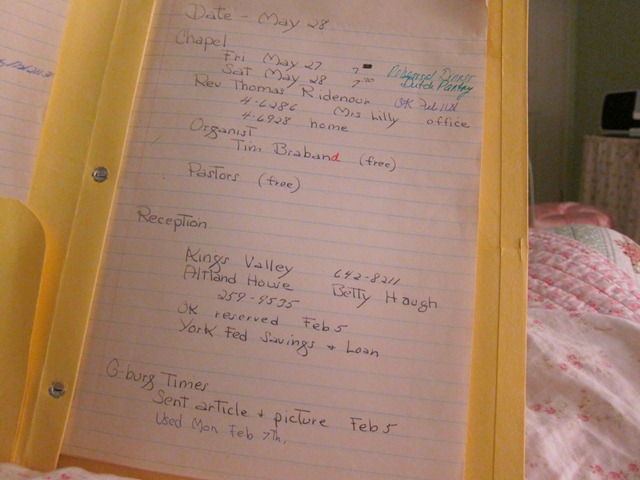 Date - May 28
Chapel
Fri May 27 7
Sat May 28 7 Rehearsal Dinner
Dutch Pantry
Rev Thomas Ridenour OK Feb 11th
4-6286 Mrs Lilly office
4-6928 home
Organist
Tim Braband (free)
Pastors (free)
Reception
Kings Valley 642-8211
Altland House Betty Haugh
259-9535
OK reserved Feb 5
York Fed Savings + Loan
G-burg Times
Sent article + picture Feb 5
Used Mon Feb 7th.